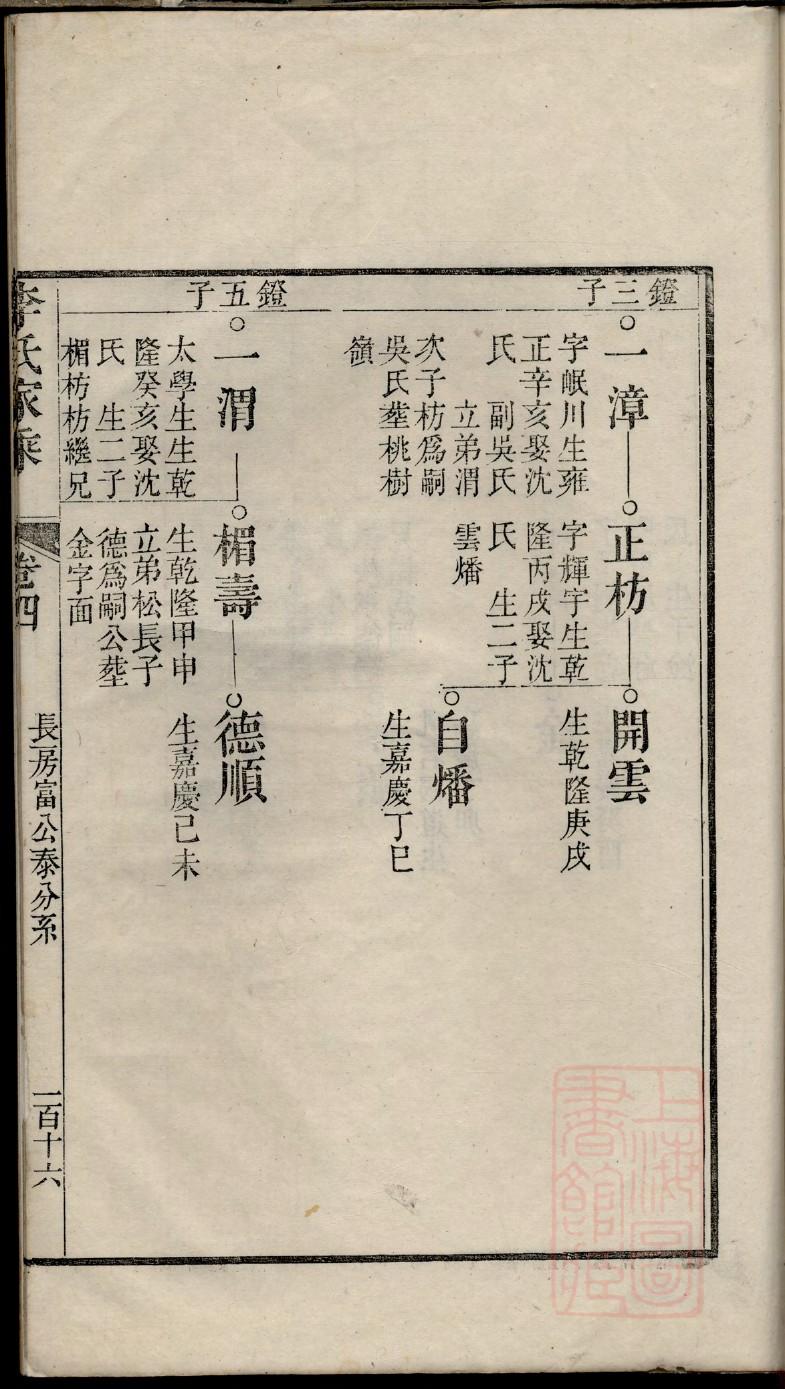 鐙三子
一漳
字岷川生雍
正辛亥娶沈
氏　副吳氏
立弟渭
次子枋爲嗣
吳氏塟桃樹
嶺
正枋
字輝宇生乾
隆丙戌娶沈
氏　生二子
雲燔
開雲
生乾隆庚戌
自燔
生嘉慶丁巳
鐙五子
一渭
太學生生乾
隆癸亥娶沈
氏　生二子
楣枋枋繼兄
楣壽
生乾隆甲申
立弟松長子
德爲嗣公塟
金字面
德順
生嘉慶己未
李氏家乘
卷四
長房富公泰分系
二百十六
上海圖
書館藏